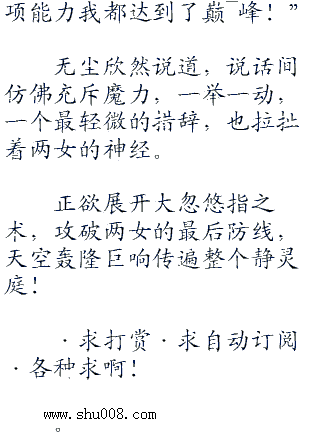 项能力我都达到了巅¯峰！”
无尘欣然说道，说话间
仿佛充斥魔力，一举一动，
一个最轻微的措辞，也拉扯
着两女的神经。
正欲展开大忽悠指之
术，攻破两女的最后防线，
天空轰隆巨响传遍整个静灵
庭！
·求打赏·求自动订阅
·各种求啊！
www.shu008.com
。